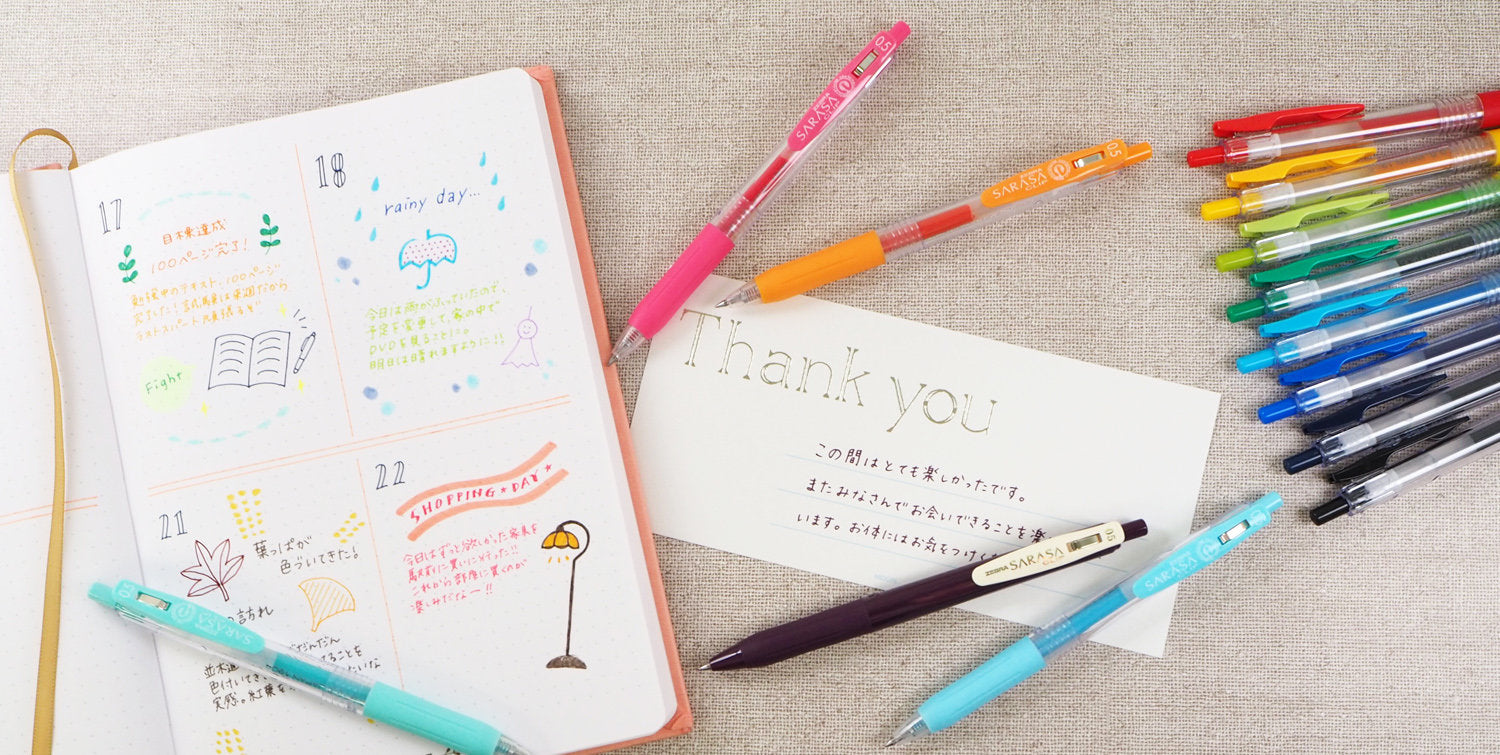 17
目標達成
100ページ完了!
勉強中のテキスト、100ページ
完了した!試験は来週だから
ラストスパート頑張るぞ
Fight
18
rainy day...
今日は雨がふっていたので、
予定を変更して家の中で
DVDを見ることに。
明日は晴れますように!!
21
葉っぱが
色づいてきた!
の訪れ
だんだん
並木道
ることを
色付いてき
たいな
実感。紅葉を
22
SHOPPING★DAY★
今日はずっと欲しかった家具を
買いに行った!!
これから部屋に置くのが
楽しみだなー!!
Thank you
この間はとても楽しかったです。
またみなさんでお会いできることを楽
います。お体にはお気をつけく
0.5
SARASA
CLIP
0.5
SARASA
CLIP
ZEBRA SARASA
CLIP
0.5
SARASA
SARASA